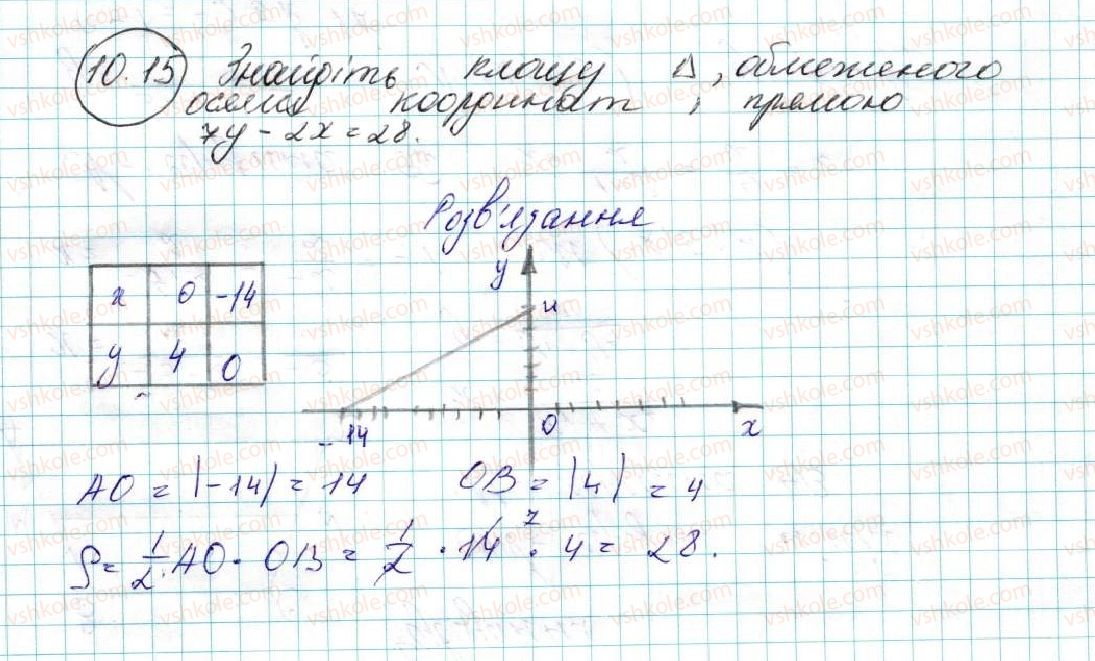 10.15 Знайдіть площу Δ, обмеженого
осями координат і прямою
7y - 2x = 28.
Розв'язання
x 0 -14
y 4 0
y
4
-14 0 x
AO = |-14| = 14 OB = |4| = 4
S = 1/2 AO · OB = 1/2 · 14 7 · 4 = 28.
vshkole.com